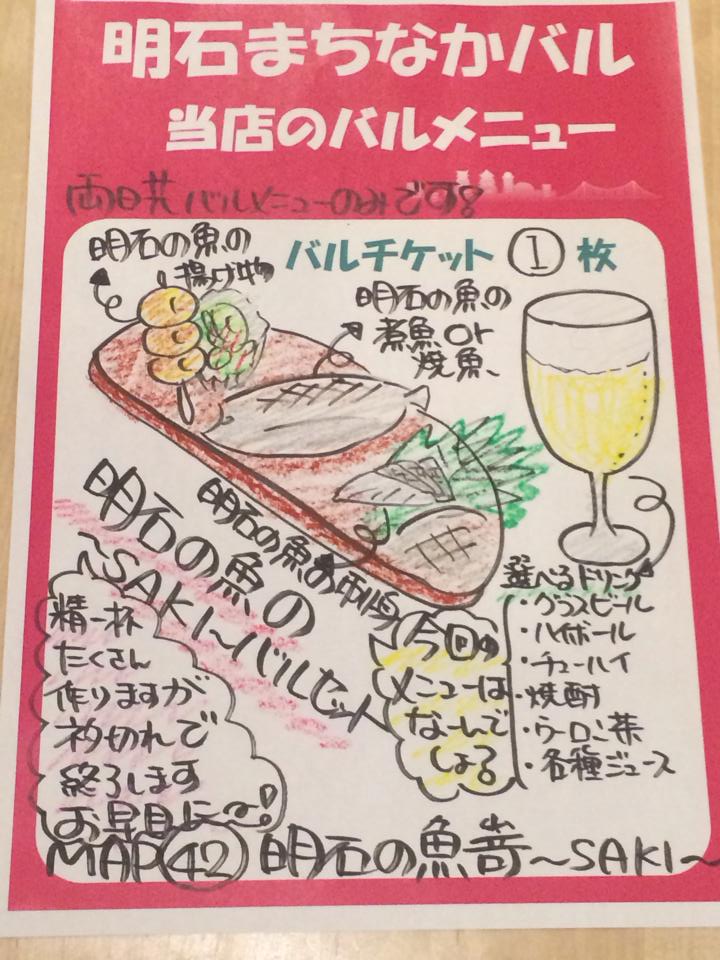 明石まちなかバル
当店のバルメニュー
両日共バルメニューのみです!
バルチケット①枚
明石の魚の
揚げ物
明石の魚の
煮魚or
焼魚
明石の魚のお刺身
明石の魚の
～SAKI～バルセット
選べるドリンク
・グラスビール
・ハイボール
・チューハイ
・焼酎
・ウーロン茶
・各種ジュース
今回の
メニューは
な～んで
しょう
精一杯
たくさん
作りますが
ネタ切れで
終了します
お早目に～!
MAP㊷ 明石の魚嵜～SAKI～